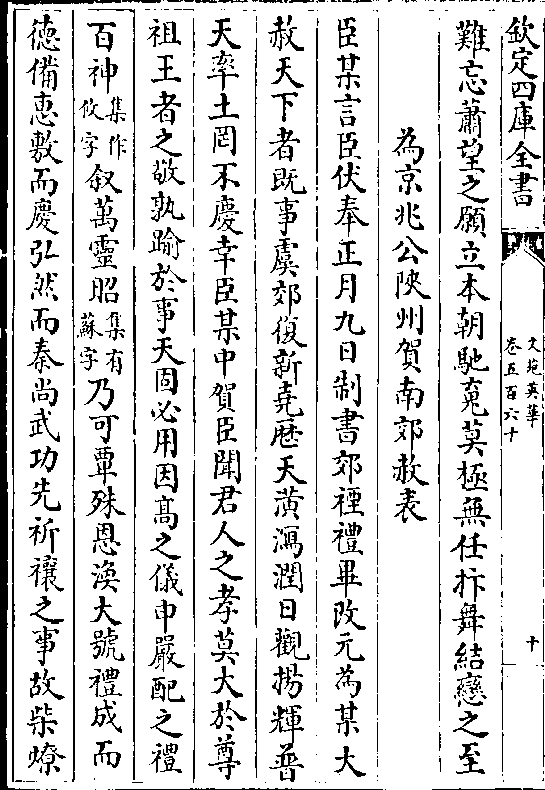 欽定四庫全書
文苑英華
卷五百六十
十
難忘蕭望之願立本朝馳䰟莫極無任抃舞結戀之至
為京兆公陜州賀南郊赦表
臣某言臣伏奉正月九日制書郊禋禮畢改元為某大
赦天下者既事虞郊復新堯歴天潢瀉潤日觀揚輝普
天率土罔不慶幸臣某中賀臣聞君人之孝莫大於尊
祖王者之敬孰踰於事天固必用因髙之儀申嚴配之禮
百神集作攸字叙萬靈昭集有蘇字乃可覃殊恩渙大號禮成而
徳備恵敷而慶弘然而秦尚武功先祈禳之事故柴燎